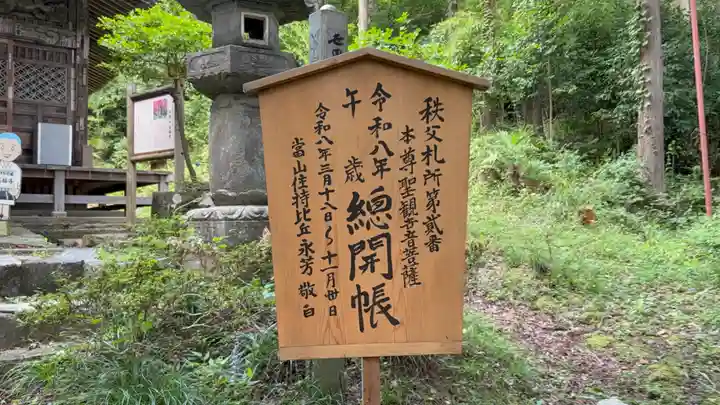 秩父札所第貳番
本尊聖観世音菩薩
令和八年
午歳
總開帳
令和八年三月十八日〜十一月卅日
當山住持比丘永芳敬白